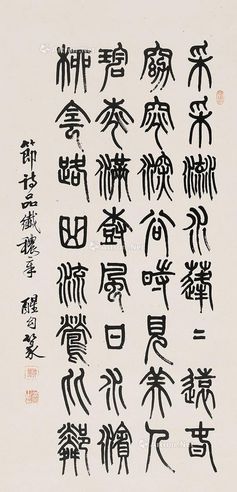 采采流水蓬〻遠春
窈窕深谷時見美人
碧桃滿樹風日水濱
柳陰路曲流鶯比鄰
節詩品纖穠章 醒 篆